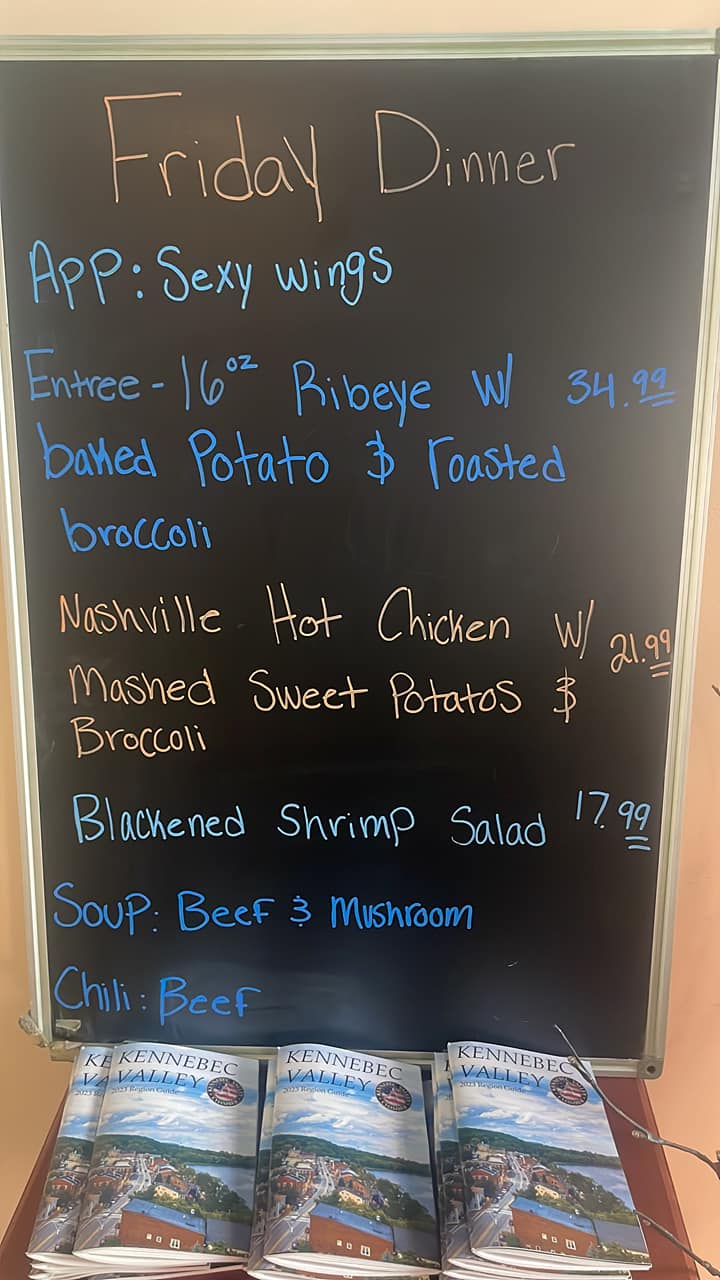 Friday Dinner
App: Sexy Wings
Entree - 16oz Ribeye w/ 34.99
baked Potato & roasted
broccoli
Nashville Hot Chicken w/ 21.99
Mashed Sweet Potatos &
Broccoli
Blackened Shrimp Salad 17.99
Soup: Beef & Mushroom
Chili: Beef
KE
VA
2023 R
KENNEBEC
VALLEY
2023 Region Guide
KENNEBEC
VALLEY
2023 Region Guide
KENNEBEC
VALLEY
2023 Region Guide